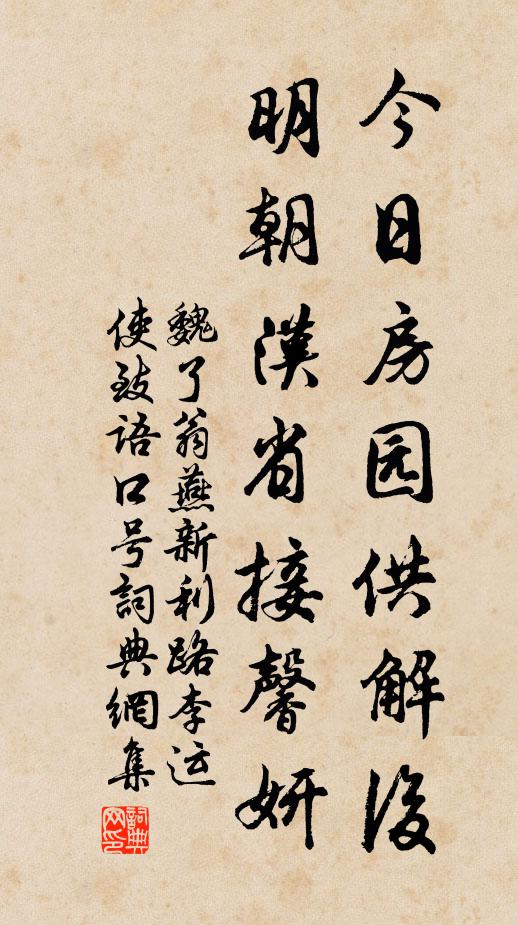 今日房园供解后
明朝漢省接馨妍
魏了翁燕新利路李运
使致语口号詞典網集
詞典网印